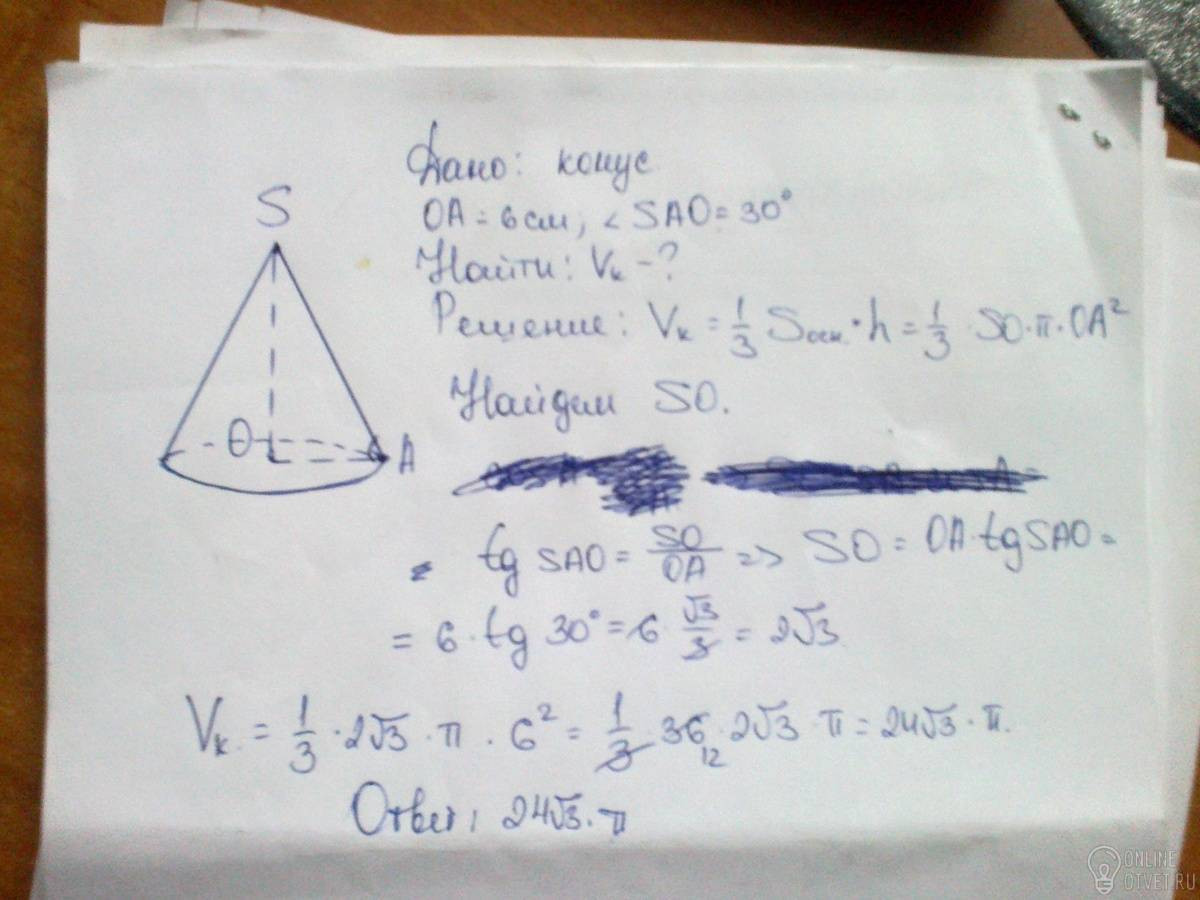 Дано: конус
ОА = 6 см, ∠ SAO = 30°
Найти: Vк - ?
Решение: Vк = 1/3 Sосн. · h = 1/3 · SO · π · OA²
Найдем SO.
tg SAO = SO/OA => SO = OA · tg SAO =
= 6 · tg 30° = 6 · √3/3 = 2√3
Vк. = 1/3 · 2√3 · π · 6² = 1/3 · 36 12 · 2√3 · π = 24√3 · π.
Ответ: 24√3 · π
S
O
A
ONLINE
OTVET.RU